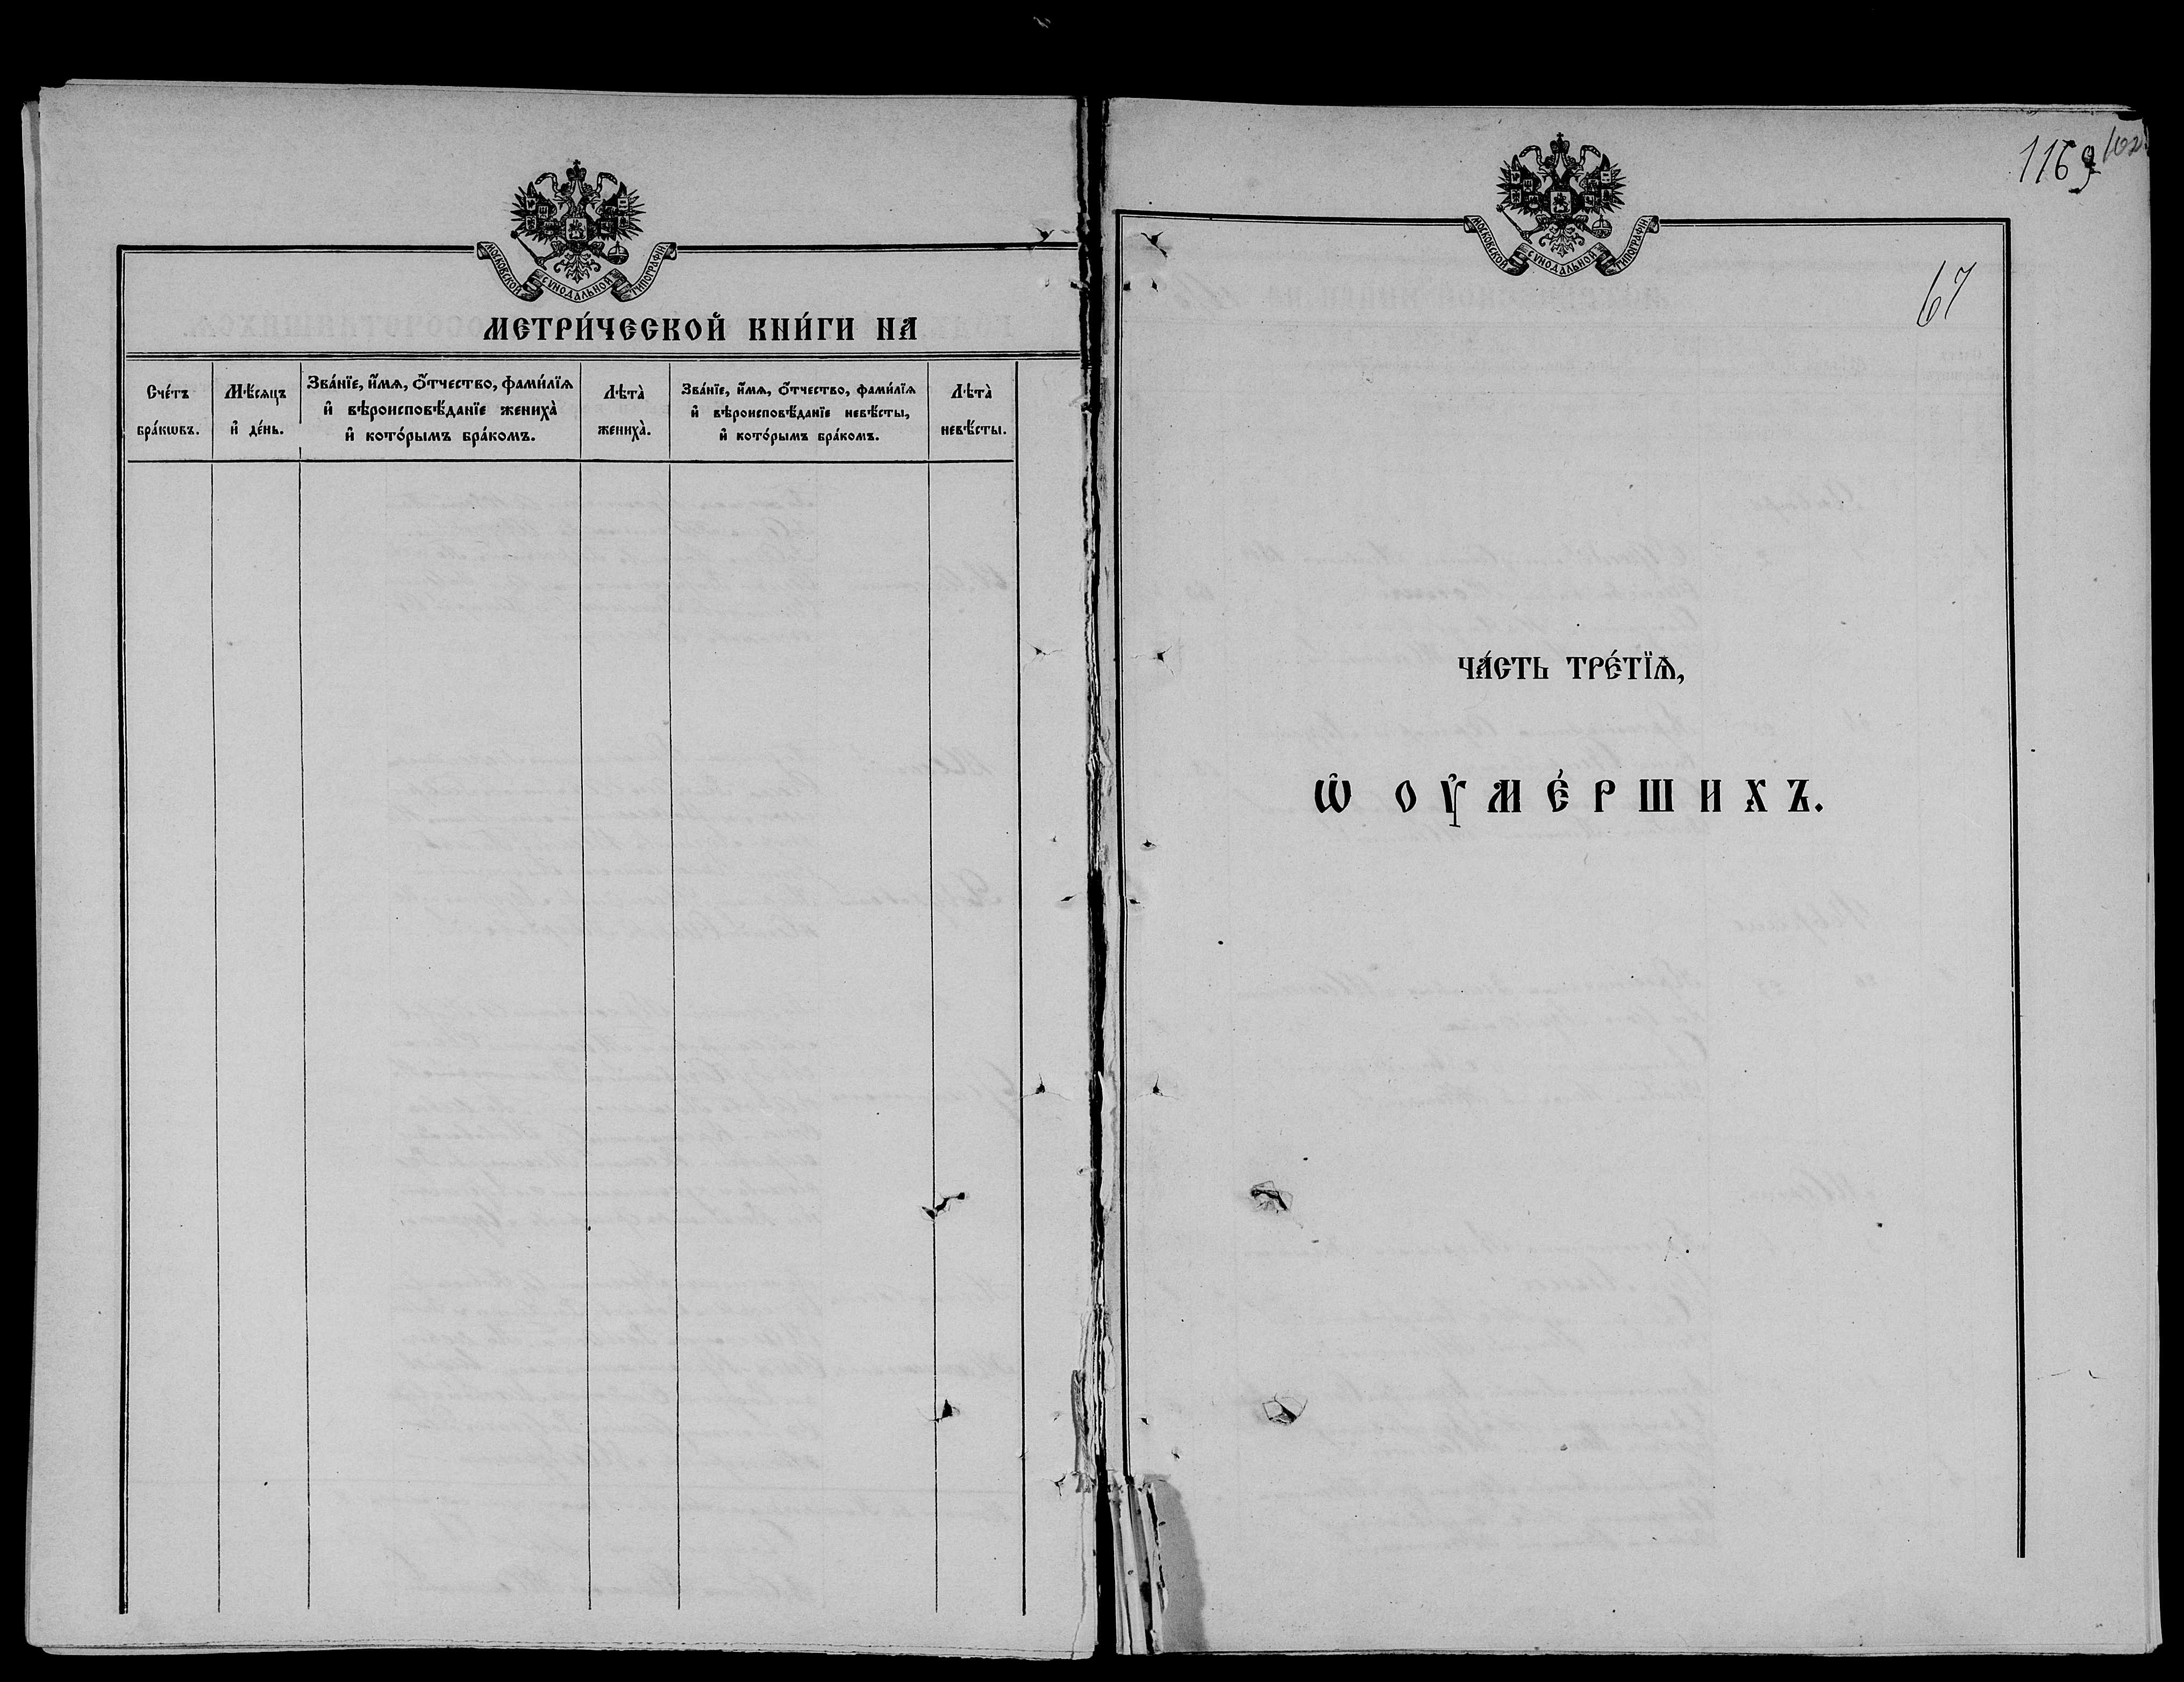 МОСКОВСКОЙ СѴНОДАЛЬНОЙ ТИПОГРАФІИ
МЕТРИ́ЧЕСКОЙ КНИ́ГИ НА
Сче́тъ бра́кѡвъ.
Мѣ́сѧцъ и҆ де́нь.
Зва́нїе, и҆́мѧ, ѻ҆́тчество, фами́лїѧ
и҆ вѣроисповѣ́данїе жениха̀
и҆ кото́рымъ бра́комъ.
Лѣта̀ жениха̀.
Зва́нїе, и҆́мѧ, ѻ҆́тчество, фами́лїѧ
и҆ вѣроисповѣ́данїе невѣ́сты,
и҆ кото́рымъ бра́комъ.
Лѣта̀ невѣ́сты.
1169
МОСКОВСКОЙ СѴНОДАЛЬНОЙ ТИПОГРАФІИ
67
ЧА́СТЬ ТРЕ́ТЇѦ,
Ѡ҆ ОУ҆МЕ́РШИХЪ.